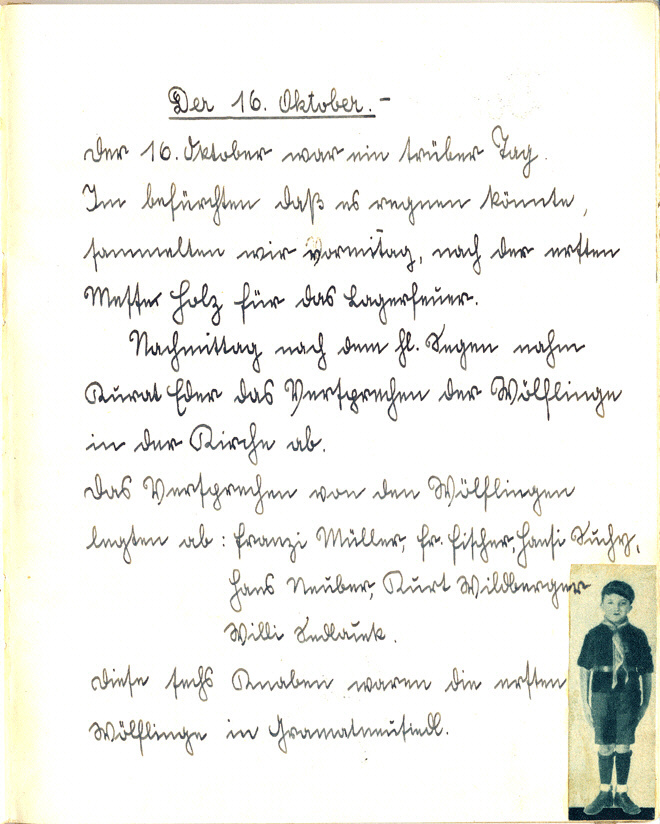 Der 16. Oktober.-
Der 16. Oktober war ein trüber Tag.
Im befürchten daß es regnen könnte,
sammelten wir vormitag, nach der ersten
Messe Holz für das Lagerfeuer.
Nachmittag nach dem hl. Segen nahm
Kurat Eder das Versprechen der Wölflinge
in der Kirche ab.
Das Versprechen von den Wölflingen
legten ab: Franzi Müller, Fr. Fischer, Hansi Suchy,
Hans Neuber, Kurt Wildberger
Willi Sedlacek.
Diese sechs Knaben waren die ersten
Wölflinge in Gramatneusiedl.